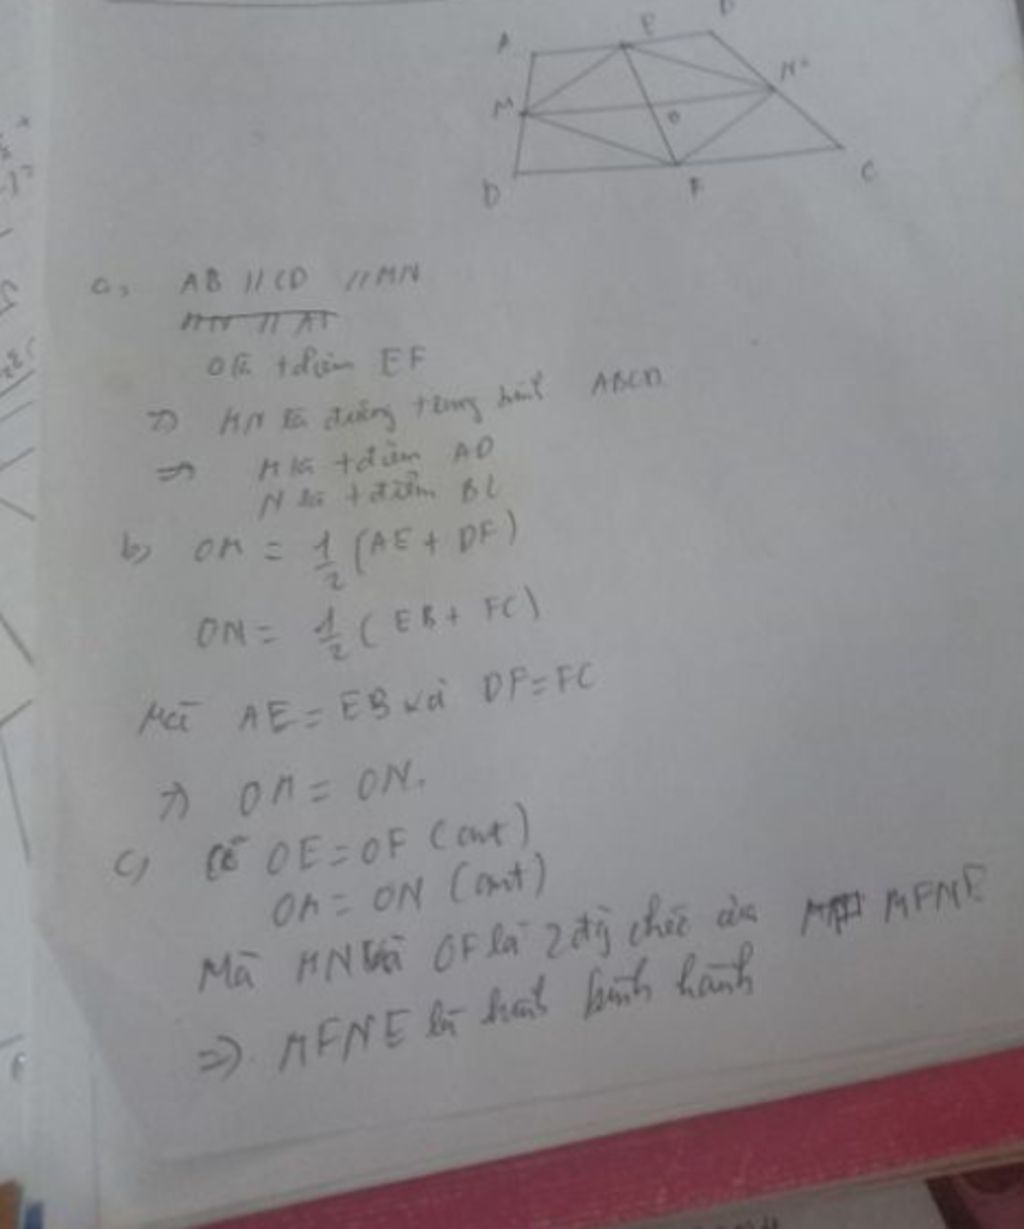 A E B
M N
O
D F C
a, AB // CD // MN
MN // AI
O là tđiểm EF
=> MN là đường trung hình ABCD
=> M là tđiểm AD
N là tđiểm BC
b) OM = 1/2 (AE + DF)
ON = 1/2 (EB + FC)
Mà AE = EB và DF = FC
=> OM = ON.
c) Có OE = OF (cmt)
OM = ON (cmt)
Mà MN và OF là 2 đg chéo của MFNE
=> MFNE là hình bình hành